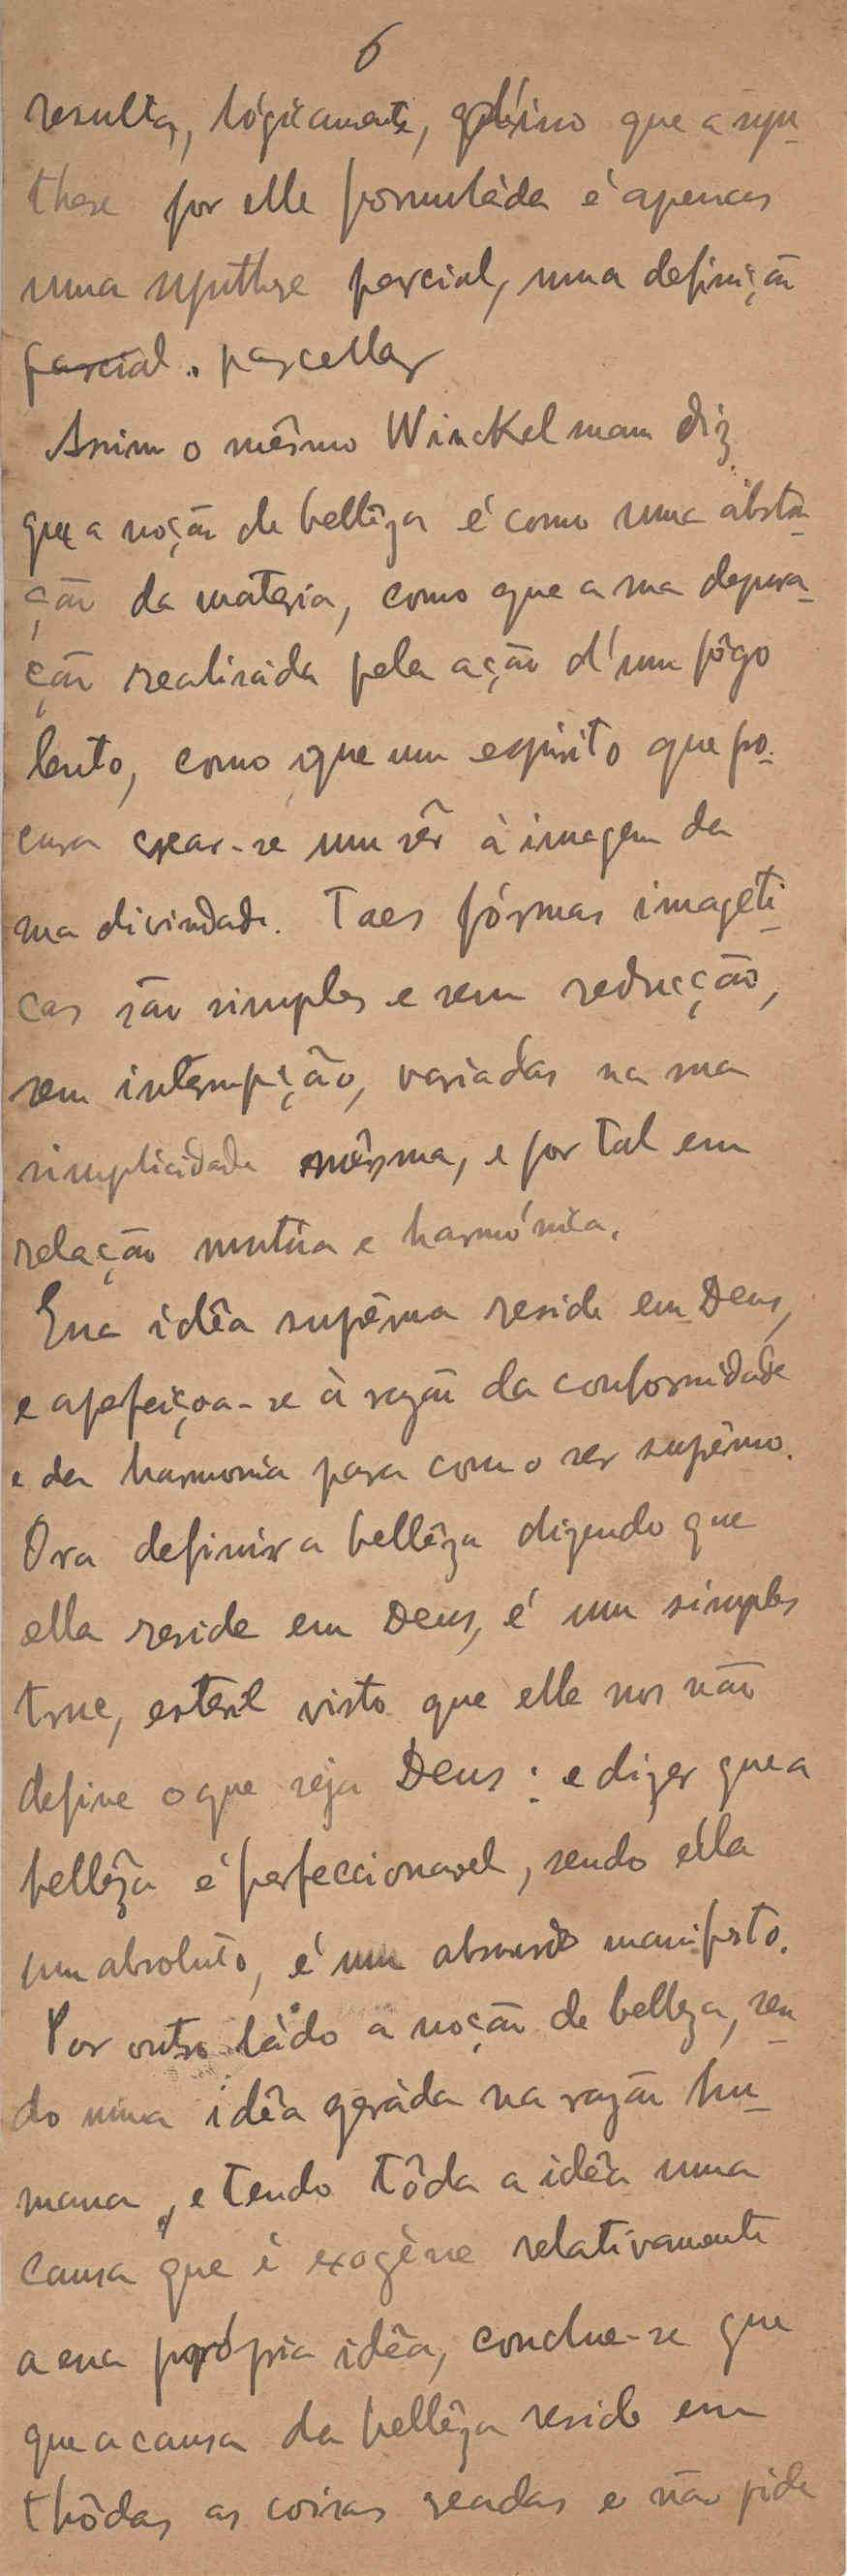 6
resulta, lógicamente, que a syn-
these por elle formuláda é apenas
uma synthese parcial, uma definição
parcial. parcellar
Assim o mêsmo Winckelmam diz
que a noção de bellêza é como uma abstra-
ção da materia, como que a sua depura-
ção realisáda pela ação d'um fôgo
lento, como que um espirito que pro-
cura crear-se um sêr à imagem da
sua divindade. Taes fórmas imagéti-
cas são simples e sem reducção,
sem interrupição, variadas na sua
simplicidade mêsma, e por tal em
relação mutúa e harmónica.
Essa idêa suprêma reside em Deus,
e aperfeiçoa-se à razão da conformidade
e da harmonia para com o ser suprêmo.
Ora definir a bellêza dizendo que
ella reside em Deus, é um simples
true, esteril visto que elle nos não
define o que seja Deus: e dizer que a
bellêza é perfeccionavel, sendo ella
um absoluto, é um absurdo manifesto.
Por outro ládo a noção de belleza, sen-
do uma idêa geráda na razão hu-
mana, e tendo tôda a idêa uma
causa que é exogène relativamente
a essa própria idêa, conclue-se que
que a causa da bellêza reside em
thôdas as coisas creadas e não pide